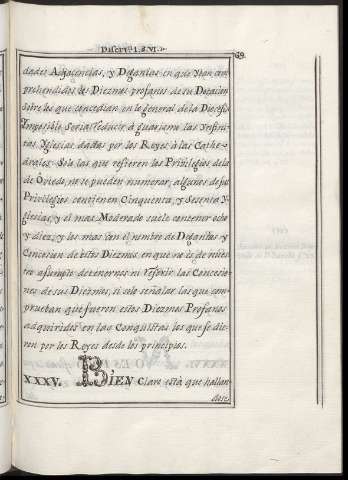 Discurso. I. §. VI.
69.
dades Adjacencias, y Deganías en que Yban com
prehendidos los Diezmos profanos de su Dotacion
sobre los que concedian en lo general de la Diocesis
Ymposible seria reducir à guarismo las Ynfini
tas Yglesias dadas por los Reyes à las Cathe
drales. Solo las que refieren los Privilegios de la
de Oviedo, no se pueden numerar, algunos de sus
Privilegios contienen Cinquenta, y Sesenta Y
glesias, y el mas Moderado suele contener ocho
y diez, y los mas con el nombre de Deganías y
Concesion de estos Diezmos, en que no es de nues
tro asumpto detenernos ni referir las Concesio
nes de sus Diezmos, si solo señalar las que com
prueban que fueron estos Diezmos Profanos
adquiridos en las Conquistas los que se die
ron por los Reyes desde los principios.
XXXV. BIEN Claro està que hallan
dose